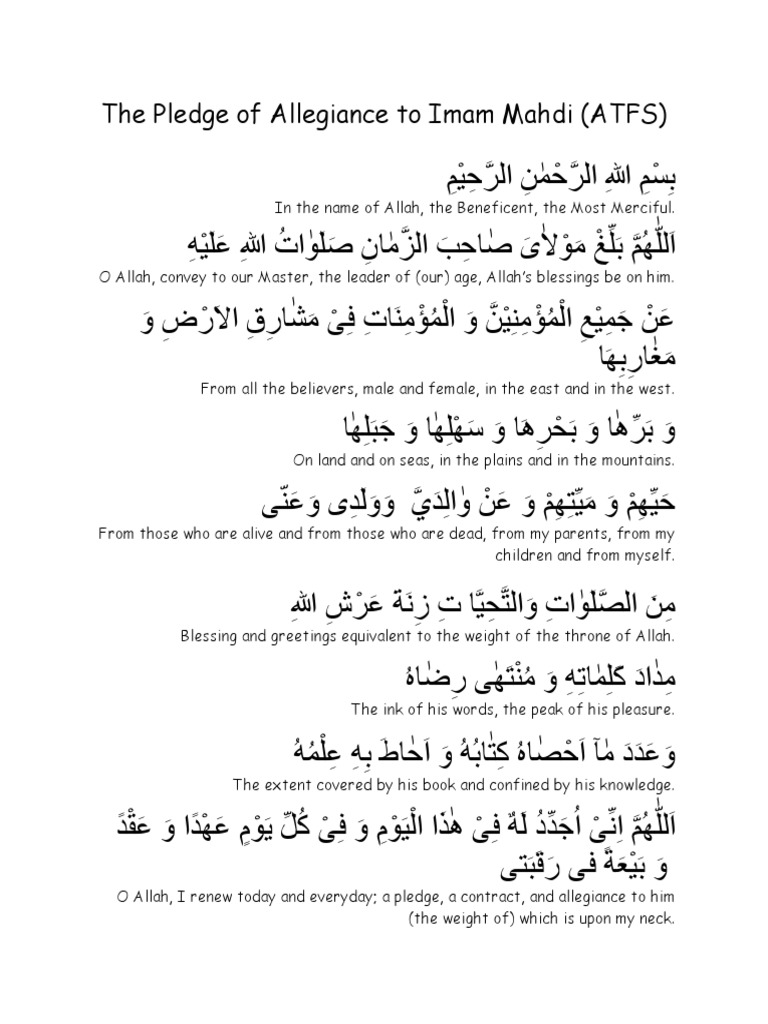 The Pledge of Allegiance to Imam Mahdi (ATFS)
بِسْمِ اللهِ الرَّحْمٰنِ الرَّحِيْمِ
In the name of Allah, the Beneficent, the Most Merciful.
اَللّٰهُمَّ بَلِّغْ مَوْلاٰىَ صٰاحِبَ الزَّمٰانِ صَلَوٰاتُ اللهِ عَلَيْهِ
O Allah, convey to our Master, the leader of (our) age, Allah’s blessings be on him.
عَنْ جَمِيْعِ الْمُؤْمِنِيْنَّ وَ الْمُؤْمِنَاتِ فِىْ مَشٰارِقِ الاَرْضِ وَ
مَغٰارِبِهَا
From all the believers, male and female, in the east and in the west.
وَ بَرِّهٰا وَ بَحْرِهَا وَ سَهْلِهٰا وَ جَبَلِهٰا
On land and on seas, in the plains and in the mountains.
حَيِّهِمْ وَ مَيِّتِهِمْ وَ عَنْ وٰالِدَيَّ وَوَلَدِى وَعَنّى
From those who are alive and from those who are dead, from my parents, from my
children and from myself.
مِنَ الصَّلَوٰاتِ وَالتَّحِيَّا تِ زِنَة عَرْشِ اللهِ
Blessing and greetings equivalent to the weight of the throne of Allah.
مِدٰادَ كَلِمٰاتِهِ وَ مُنْتَهٰى رِضٰاهُ
The ink of his words, the peak of his pleasure.
وَعَدَدَ مٰآ اَحْصٰاهُ كِتٰابُهُ وَ اَحٰاطَ بِهِ عِلْمُهُ
The extent covered by his book and confined by his knowledge.
اَللّٰهُمَّ اِنِّىْ اُجَدِّدُ لَهُ فِىْ هٰذَا الْيَوْمِ وَ فِىْ كُلِّ يَوْمٍ عَهْدًا وَ عَقْدً
وَ بَيْعَةً فى رَقَبَتى
O Allah, I renew today and everyday; a pledge, a contract, and allegiance to him
(the weight of) which is upon my neck.